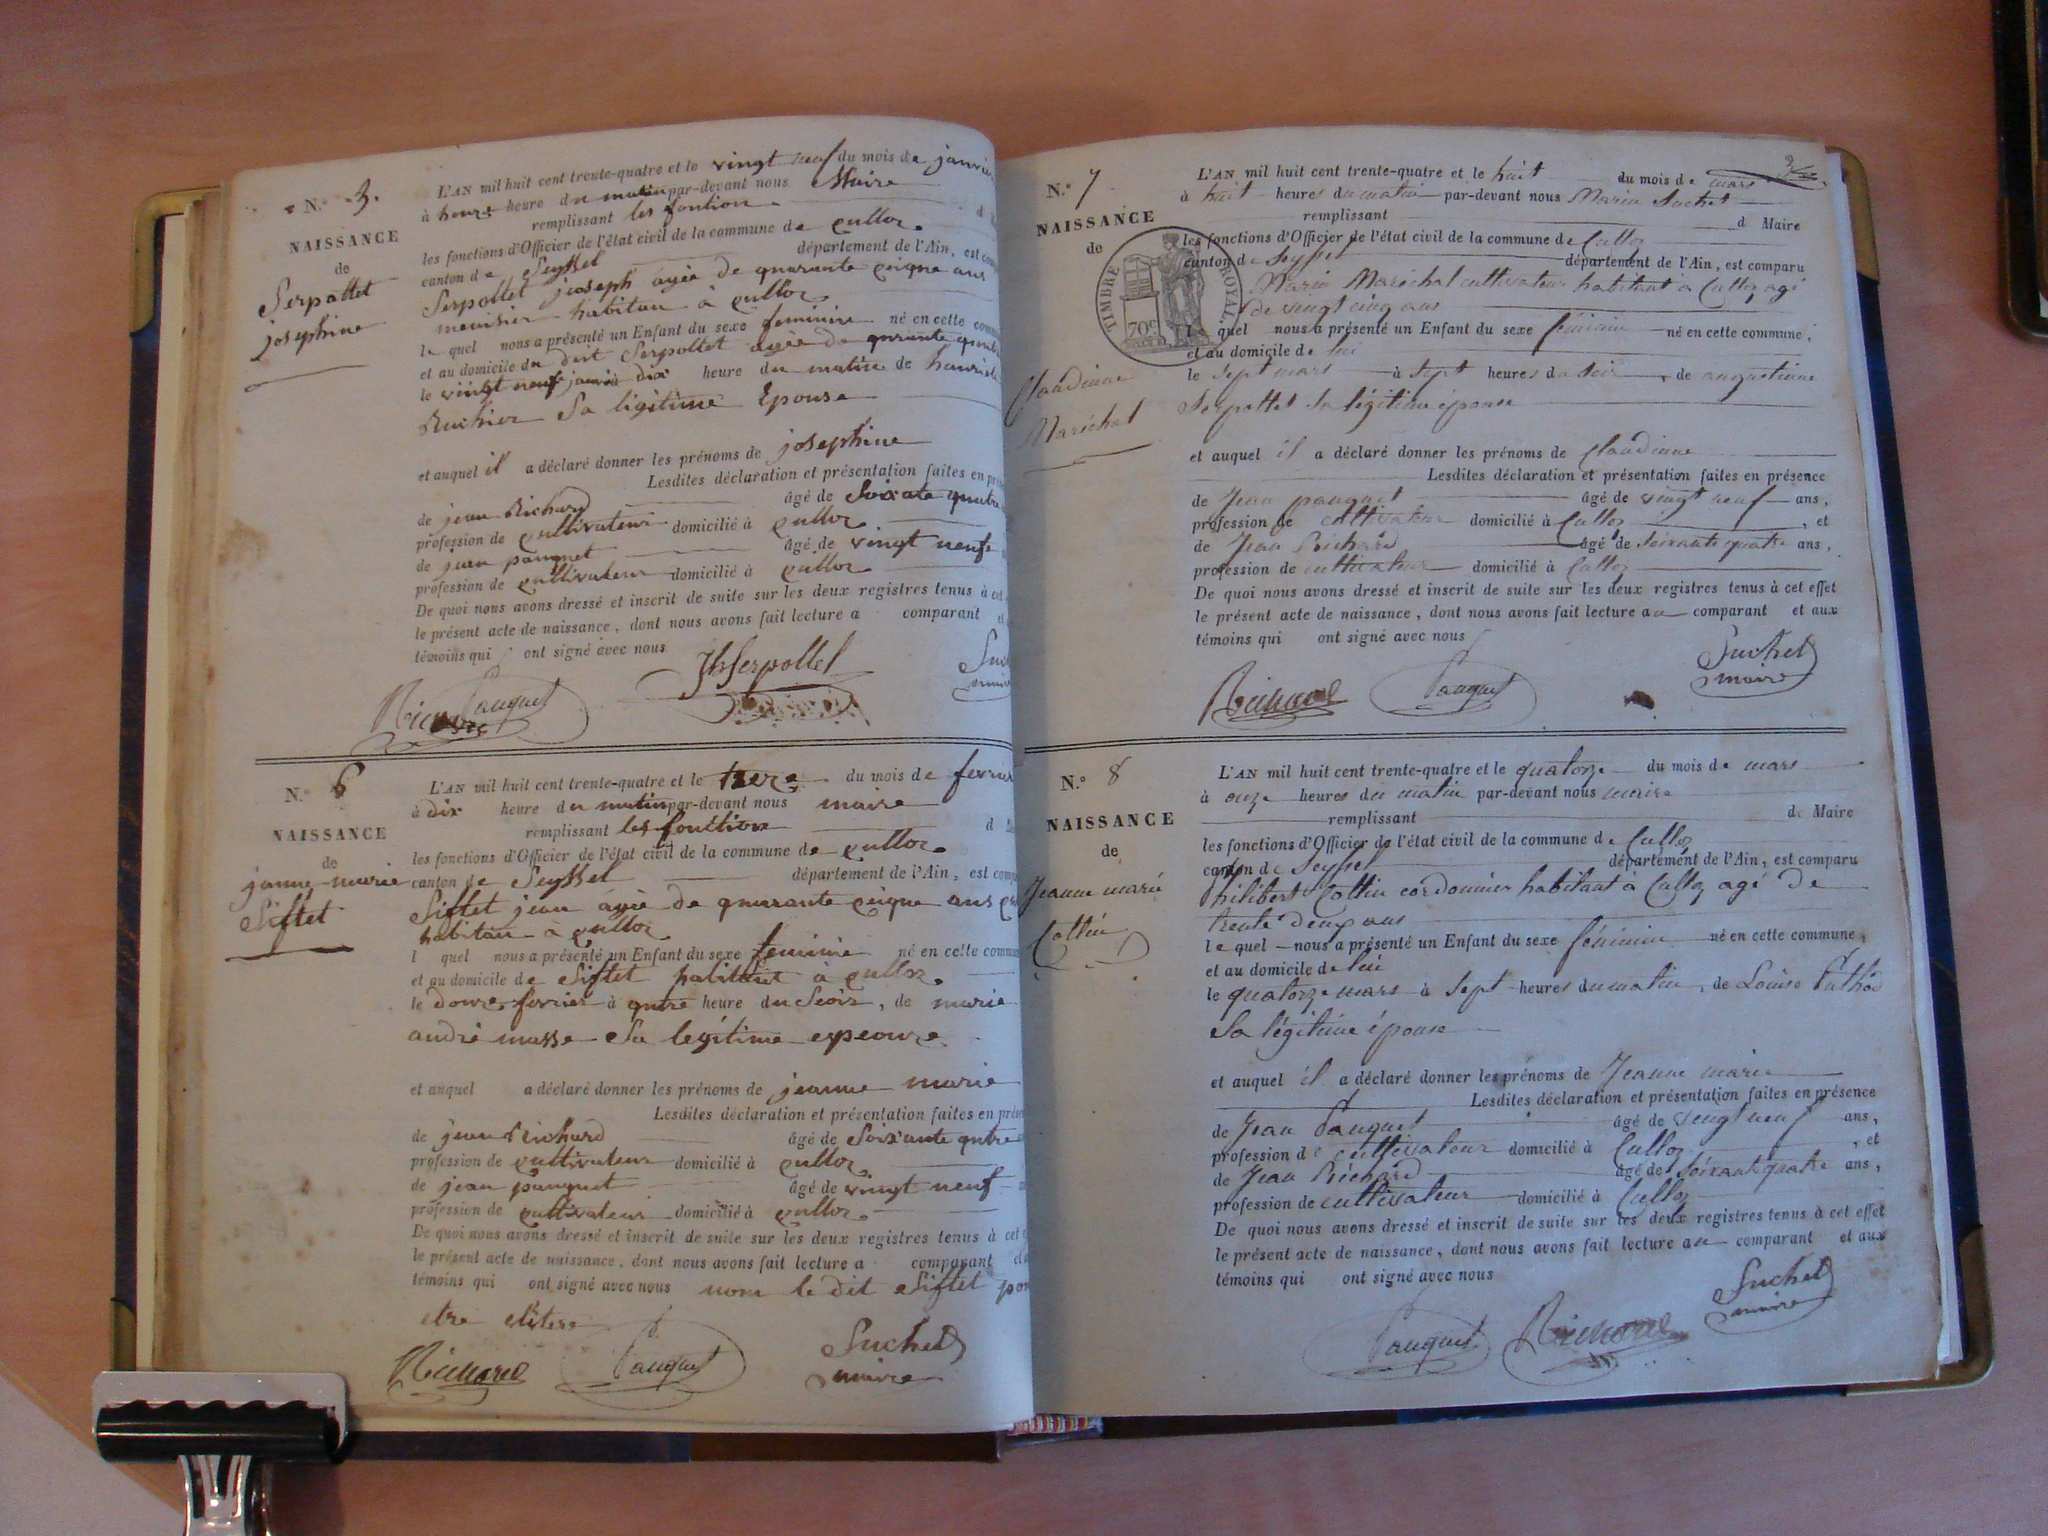 N.° 5.
NAISSANCE
de
Serpollet
josephine
L'AN mil huit cent trente-quatre et le vingt neuf du mois de janvier
à heure du matin par-devant nous Maire
remplissant les fontion
les fonctions d'Officier de l'état civil de la commune de culloz
canton de Seyssel département de l'Ain, est comp
Serpollet joseph agée de quarante cinque ans
menisier habitan à culloz
le quel nous a présenté un Enfant du sexe feminine né en cette comm
et au domicile du dit Serpollet agée de
le vingt neuf janvié dix heure du matin de
Ruchier Sa légitime Epouse
et auquel il a déclaré donner les prénoms de josephine
Lesdites déclaration et présentation faites en pré
de jean Richard âgé de soixate quatre
profession de cultivateur domicilié à culloz
de jean pauquet âgé de vingt neufe
profession de cultivateur domicilié à culloz
De quoi nous avons dressé et inscrit de suite sur les deux registres tenus à cet
le présent acte de naissance, dont nous avons fait lecture a comparant et
témoins qui ont signé avec nous
JhSerpollet
Suchet
maire
Richard
Pauquet
N.° 6
NAISSANCE
de
janne-marie
Siftet
L'AN mil huit cent trente-quatre et le treze du mois de fevrier
à dix heure du matin par-devant nous maire
remplissant les fonction d
les fonctions d'Officier de l'état civil de la commune de culloz
canton de Seyssel département de l'Ain, est comp
Siftet jean agée de quarante cinque ans
habitan a culloz
l quel nous a présenté un Enfant du sexe feminine né en cette commun
et au domicile de Siftet habitant à culloz
le douze fevrier à qutre heure du Seoir, de marie
andré masse Sa legitime espeouze
et auquel a déclaré donner les prénoms de jeanne marie
Lesdites déclaration et présentation faites en prése
de jean Richard âgé de soixante qutre
profession de cultivateur domicilié à culloz
de jean pauquet âgé de vingt neuf
profession de cultivateur domicilié à culloz
De quoi nous avons dressé et inscrit de suite sur les deux registres tenus à cet
le présent acte de naissance, dont nous avons fait lecture a comparant et
témoins qui ont signé avec nous non le dit Siftet pour
etre
Richard Pauquet Suchet
maire
N.° 7
NAISSANCE
de
TIMBRE ROYAL
70c
Claudinne
Maréchal
L'AN mil huit cent trente-quatre et le huit du mois de mars
à huit heures du matin par-devant nous Marin Suchet
remplissant d Maire
les fonctions d'Officier de l'état civil de la commune de Culloz
canton de Seyssel département de l'Ain, est comparu
Marin Maréchal cultivateur habitant à Culloz agé
de vingt cinq ans
l quel nous a présenté un Enfant du sexe féminin né en cette commune,
et au domicile de lui
le sept mars à sept heures du soir, de augustinne
Serpollet sa légitime épouse
et auquel il a déclaré donner les prénoms de Claudinne
Lesdites déclaration et présentation faites en présence
de Jean pauquet âgé de vingt neuf ans,
profession de cultivateur domicilié à Culloz, et
de Jean Richard âgé de soixante quatre ans,
profession de cultivateur domicilié à Culloz
De quoi nous avons dressé et inscrit de suite sur les deux registres tenus à cet effet
le présent acte de naissance, dont nous avons fait lecture au comparant et aux
témoins qui ont signé avec nous
Suchet
maire
Richard Pauquet
N.° 8
NAISSANCE
de
Jeanne marie
Cottin
L'AN mil huit cent trente-quatre et le quatorze du mois de mars
à onze heures du matin par-devant nous maire
remplissant de Maire
les fonctions d'Officier de l'état civil de la commune de Culloz
canton de Seyssel département de l'Ain, est comparu
philibert Cottin cordonnier habitant à Culloz agé de
trente deux ans
le quel nous a présenté un Enfant du sexe féminin né en cette commune,
et au domicile de lui
le quatorze mars à sept heures du matin, de Louise
Sa légitime épouse
et auquel il a déclaré donner les prénoms de Jeanne marie
Lesdites déclaration et présentation faites en présence
de Jean Pauquet âgé de vingt neuf ans,
profession de cultivateur domicilié à Culloz, et
de Jean Richard âgé de soixante quatre ans,
profession de cultivateur domicilié à Culloz
De quoi nous avons dressé et inscrit de suite sur les deux registres tenus à cet effet
le présent acte de naissance, dont nous avons fait lecture au comparant et aux
témoins qui ont signé avec nous
Suchet
maire
Pauquet Richard